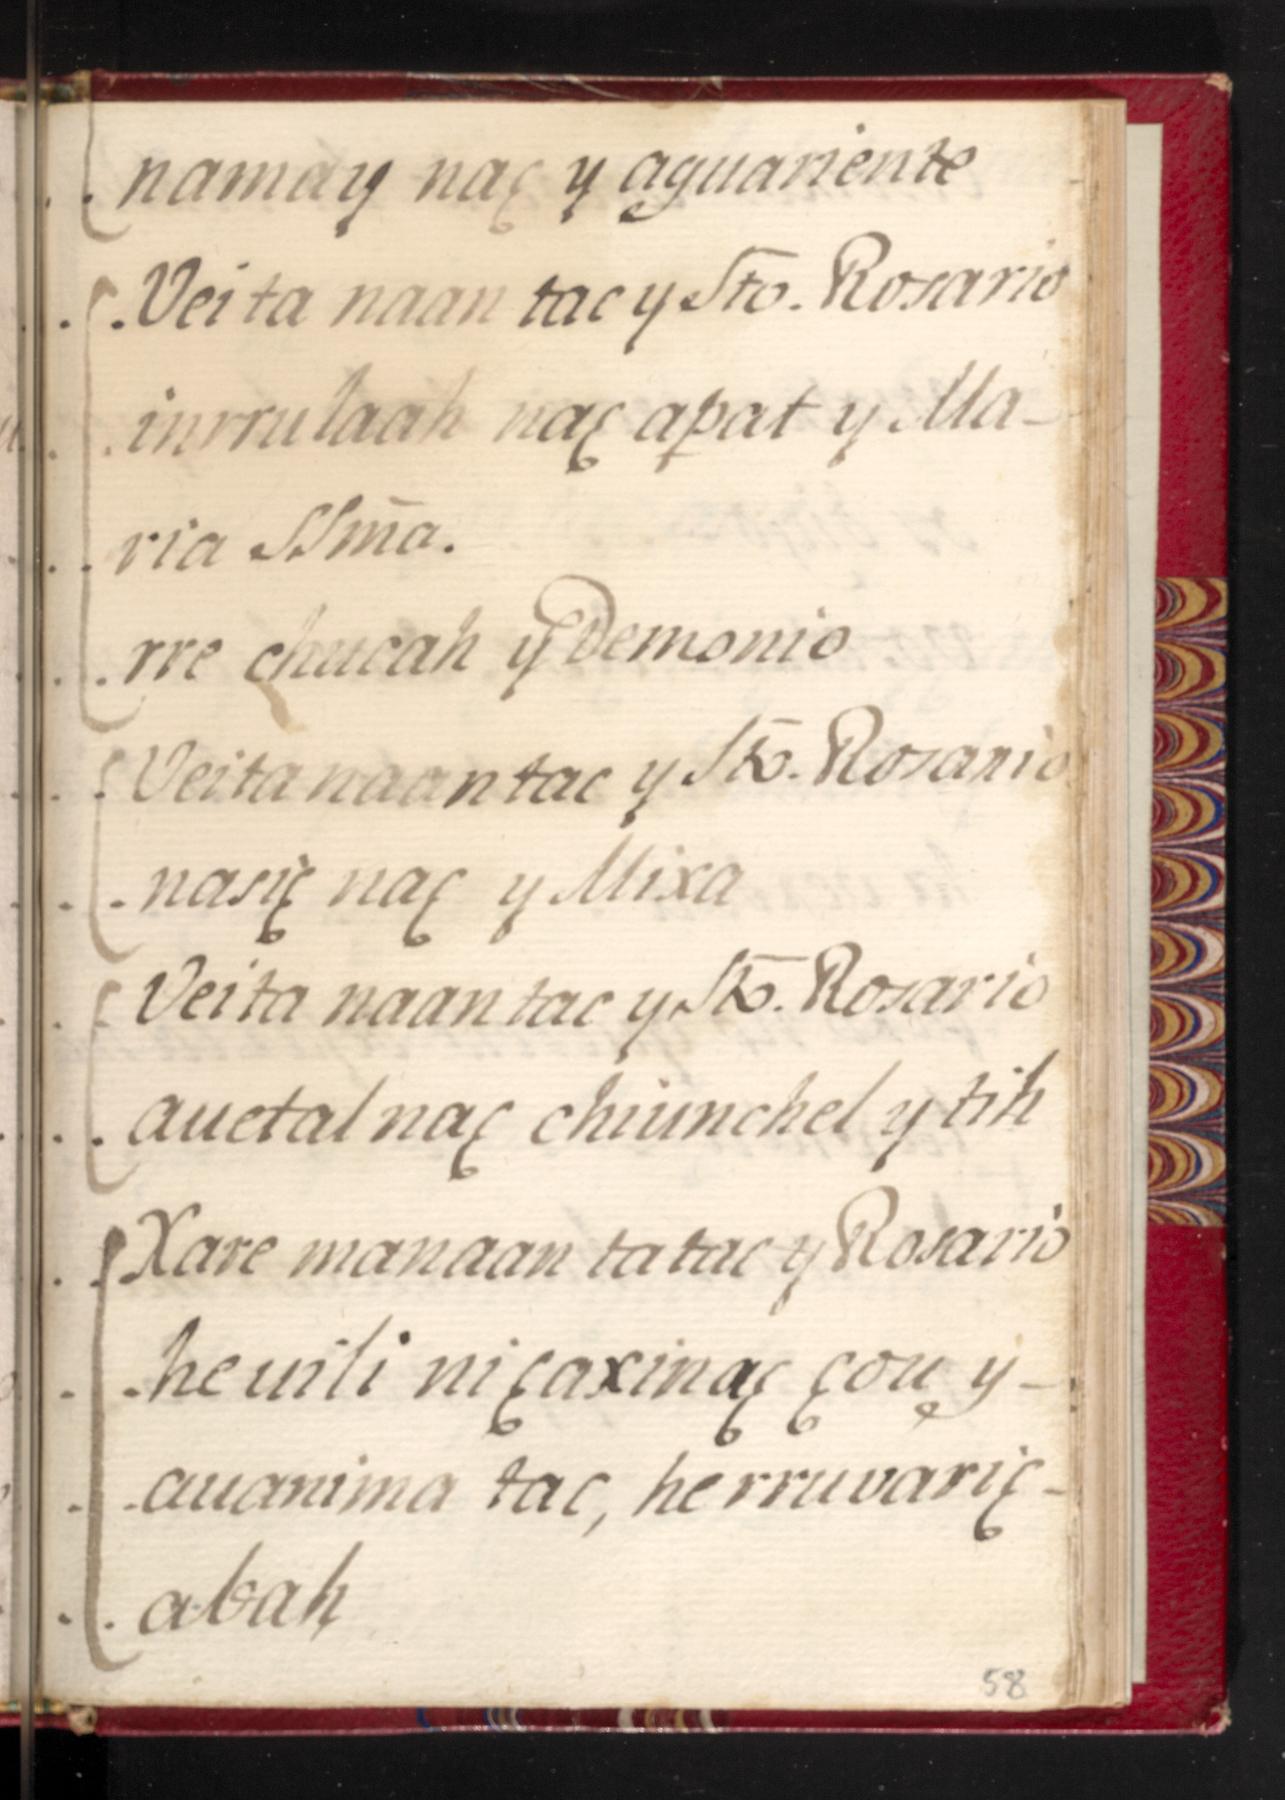 namay naꜫ y aguariente
Veita naan tac y Sto. Rosario
inrrulaah naꜫ apat y Ma-
ria SSm̄a.
rre chucah y Demonio
Veita naan tac y Sto. Rosario
nasiꜫ naꜫ y Mixa
Veita naan tac y Sto. Rosario
auetal naꜫ chiunchel y tih
Xare manaan ta tac y Rosario
he uili niꜫaxinaꜫ ꜫou y-
auanima tac, he rruvariꜫ-
abah
58